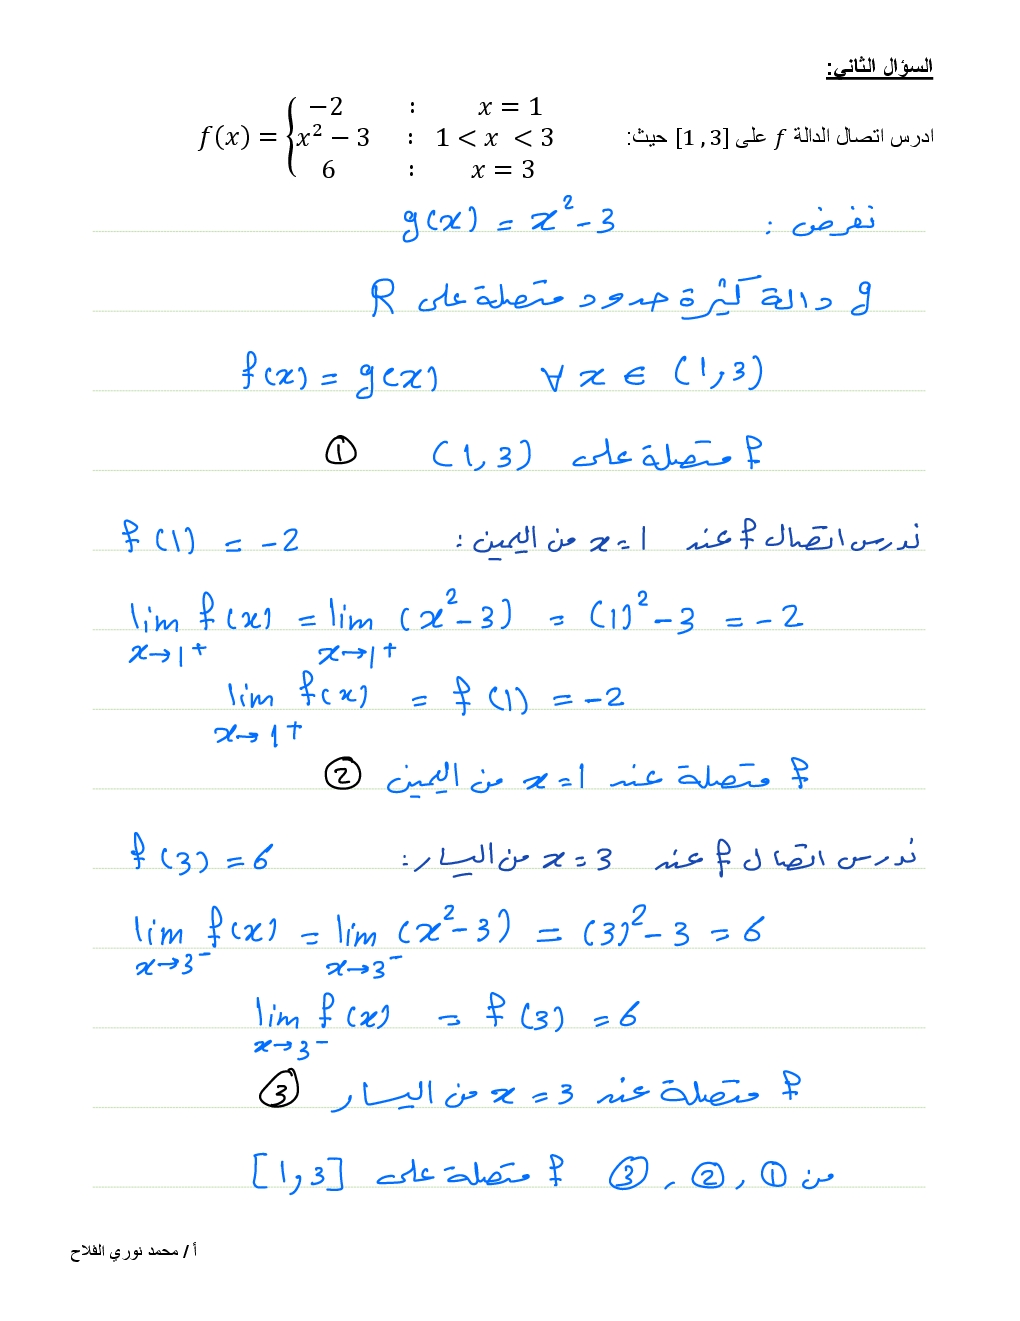 السؤال الثاني:
ادرس اتصال الدالة f على [1 , 3] حيث: f(x) = { −2 : x = 1
x² − 3 : 1 < x < 3
6 : x = 3
نفرض : g(x) = x² - 3
g دالة كثيرة حدود متصلة على R
f(x) = g(x) ∀ x ∈ (1,3)
f متصلة على (1,3) ①
ندرس اتصال f عند x = 1 من اليمين : f(1) = -2
lim x→1⁺ f(x) = lim x→1⁺ (x² - 3) = (1)² - 3 = -2
lim x→1⁺ f(x) = f(1) = -2
f متصلة عند x = 1 من اليمين ②
ندرس اتصال f عند x = 3 من اليسار : f(3) = 6
lim x→3⁻ f(x) = lim x→3⁻ (x² - 3) = (3)² - 3 = 6
lim x→3⁻ f(x) = f(3) = 6
f متصلة عند x = 3 من اليسار ③
من ① , ② , ③ f متصلة على [1,3]
أ / محمد نوري الفلاح